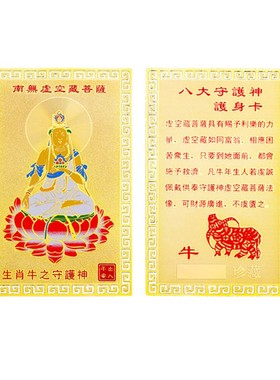 南無虛空藏菩薩
生肖牛之守護神
八大守護神
護身卡
虛空藏菩薩具有賜予利樂的力
量、虛空藏如同富翁、相應困
苦衆生、只要到她面前、都會
施予救濟 凡牛年生人若虔誠
佩戴供奉守護神虛空藏菩薩法
像、可財源廣進、不虞遺之。
牛